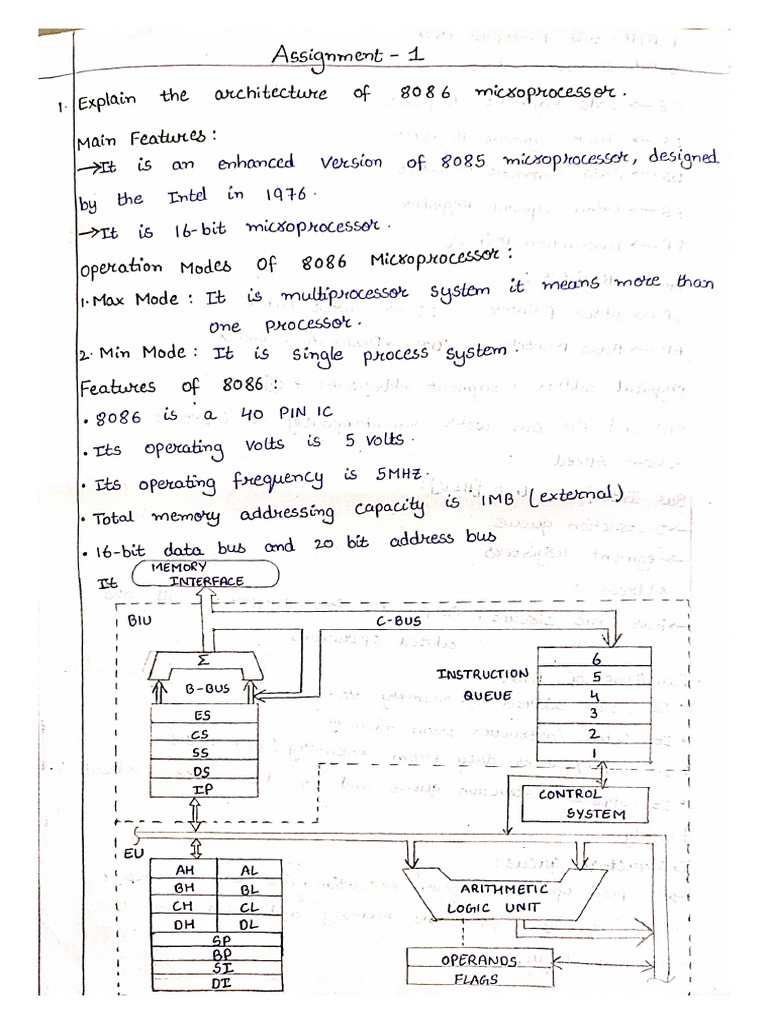 Assignment - 1
1. Explain the architecture of 8086 microprocessor.
Main Features:
→It is an enhanced version of 8085 microprocessor, designed
by the Intel in 1976.
→It is 16-bit microprocessor.
Operation Modes Of 8086 Microprocessor:
1. Max Mode: It is multiprocessor system it means more than
one processor.
2. Min Mode: It is single process system.
Features of 8086:
• 8086 is a 40 PIN IC
• Its operating volts is 5 volts.
• Its operating frequency is 5MHZ.
• Total memory addressing capacity is 1MB (external)
• 16-bit data bus and 20 bit address bus
It
MEMORY
INTERFACE
BIU
C-BUS
Σ
B-BUS
INSTRUCTION
QUEUE
6
5
4
3
2
1
ES
CS
SS
DS
IP
CONTROL
SYSTEM
EU
AH AL
BH BL
CH CL
DH DL
SP
BP
SI
DI
ARITHMETIC
LOGIC UNIT
OPERANDS
FLAGS